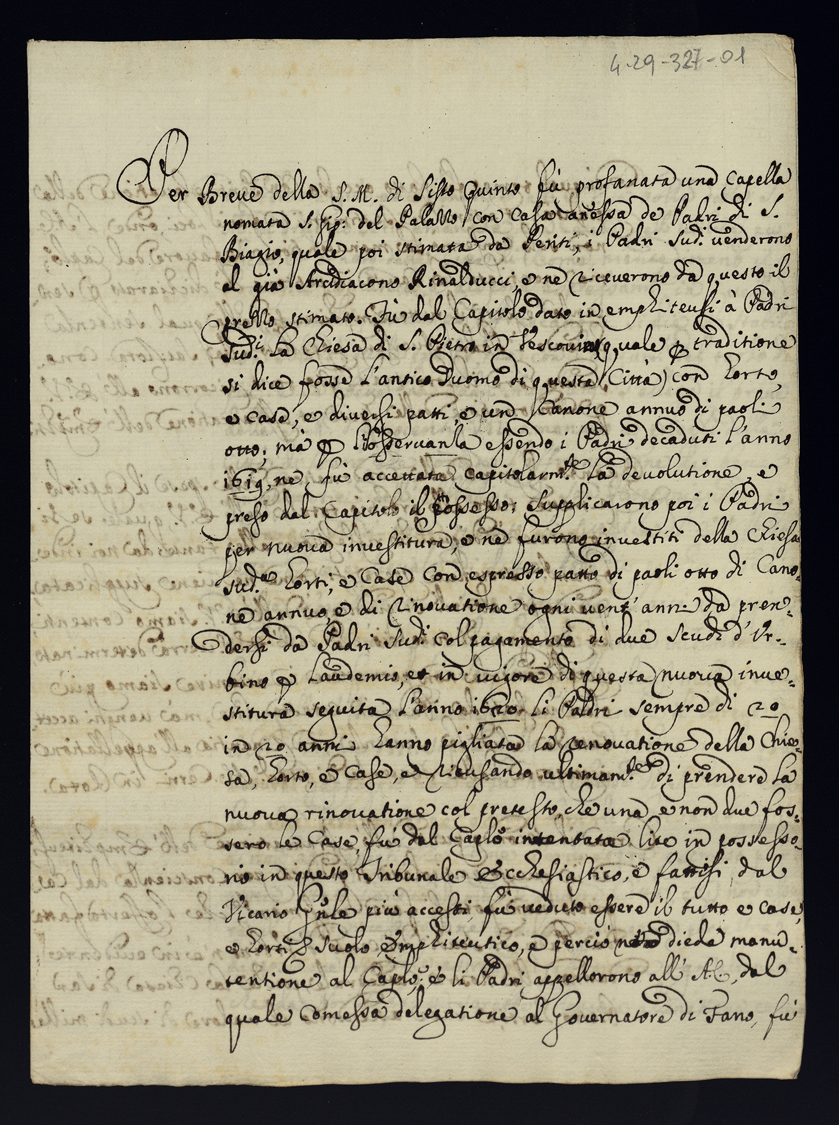 4-29-327-01
Per Breve della S. M. di Sisto Quinto fù profanata una Capella
nomata S. Gio: del Palazzo con Casa añessa de Padri di S.
Biagio, quale poi stimata da Periti, i Padri Sud.i venderono
al già Arcidiacono Rinalducci, e ne riceverono da questo il
prezzo stimato. Fù dal Capitolo dato in emphiteusi à Padri
Sud.i la Chiesa di S. Pietro in Vescovin (quale ꝑ traditione
si dice fosse l'antico Duomo di questa Città) con horto,
e case, e diversi patti, e un Canone annuo di paoli
otto; mà ꝑ l'osservanza essendo i Padri decaduti l'anno
1619, ne fù accettata capitolarm.te la devolutione, e
preso dal Capitolo il possesso; Supplicarono poi i Padri
per nuova investitura, e ne furono investiti della Chiesa
sud.a horti, e Case con espresso patto di paoli otto di Cano-
ne annuo, e di rinovatione ogni vent' anni da pren-
dersi da Padri sud.i col pagamento di due scudi d'Ur-
bino ꝑ Laudemio, et in vigore di questa nuova inve-
stitura seguita l'anno 1620 li Padri sempre di 20
in 20 anni hanno pigliata la renovatione della Chie-
sa, horto, e Case, e ricusando ultimam.te di prendere la
nuova rinovatione col pretesto, che una, e non due fos-
sero le Case, fù dal Caplo intentata lite in possesso-
rio in questo Tribunale Ecclesiastico, e fattisi dal
Vicario Gñle più accessi fù veduto essere il tutto e case,
e horti e suolo Emphiteutico, e perciò diede manu-
tentione al Caplo, e li Padri appellorono all' AC, dal
quale Comessa delegatione al Governatore di Fano, fù